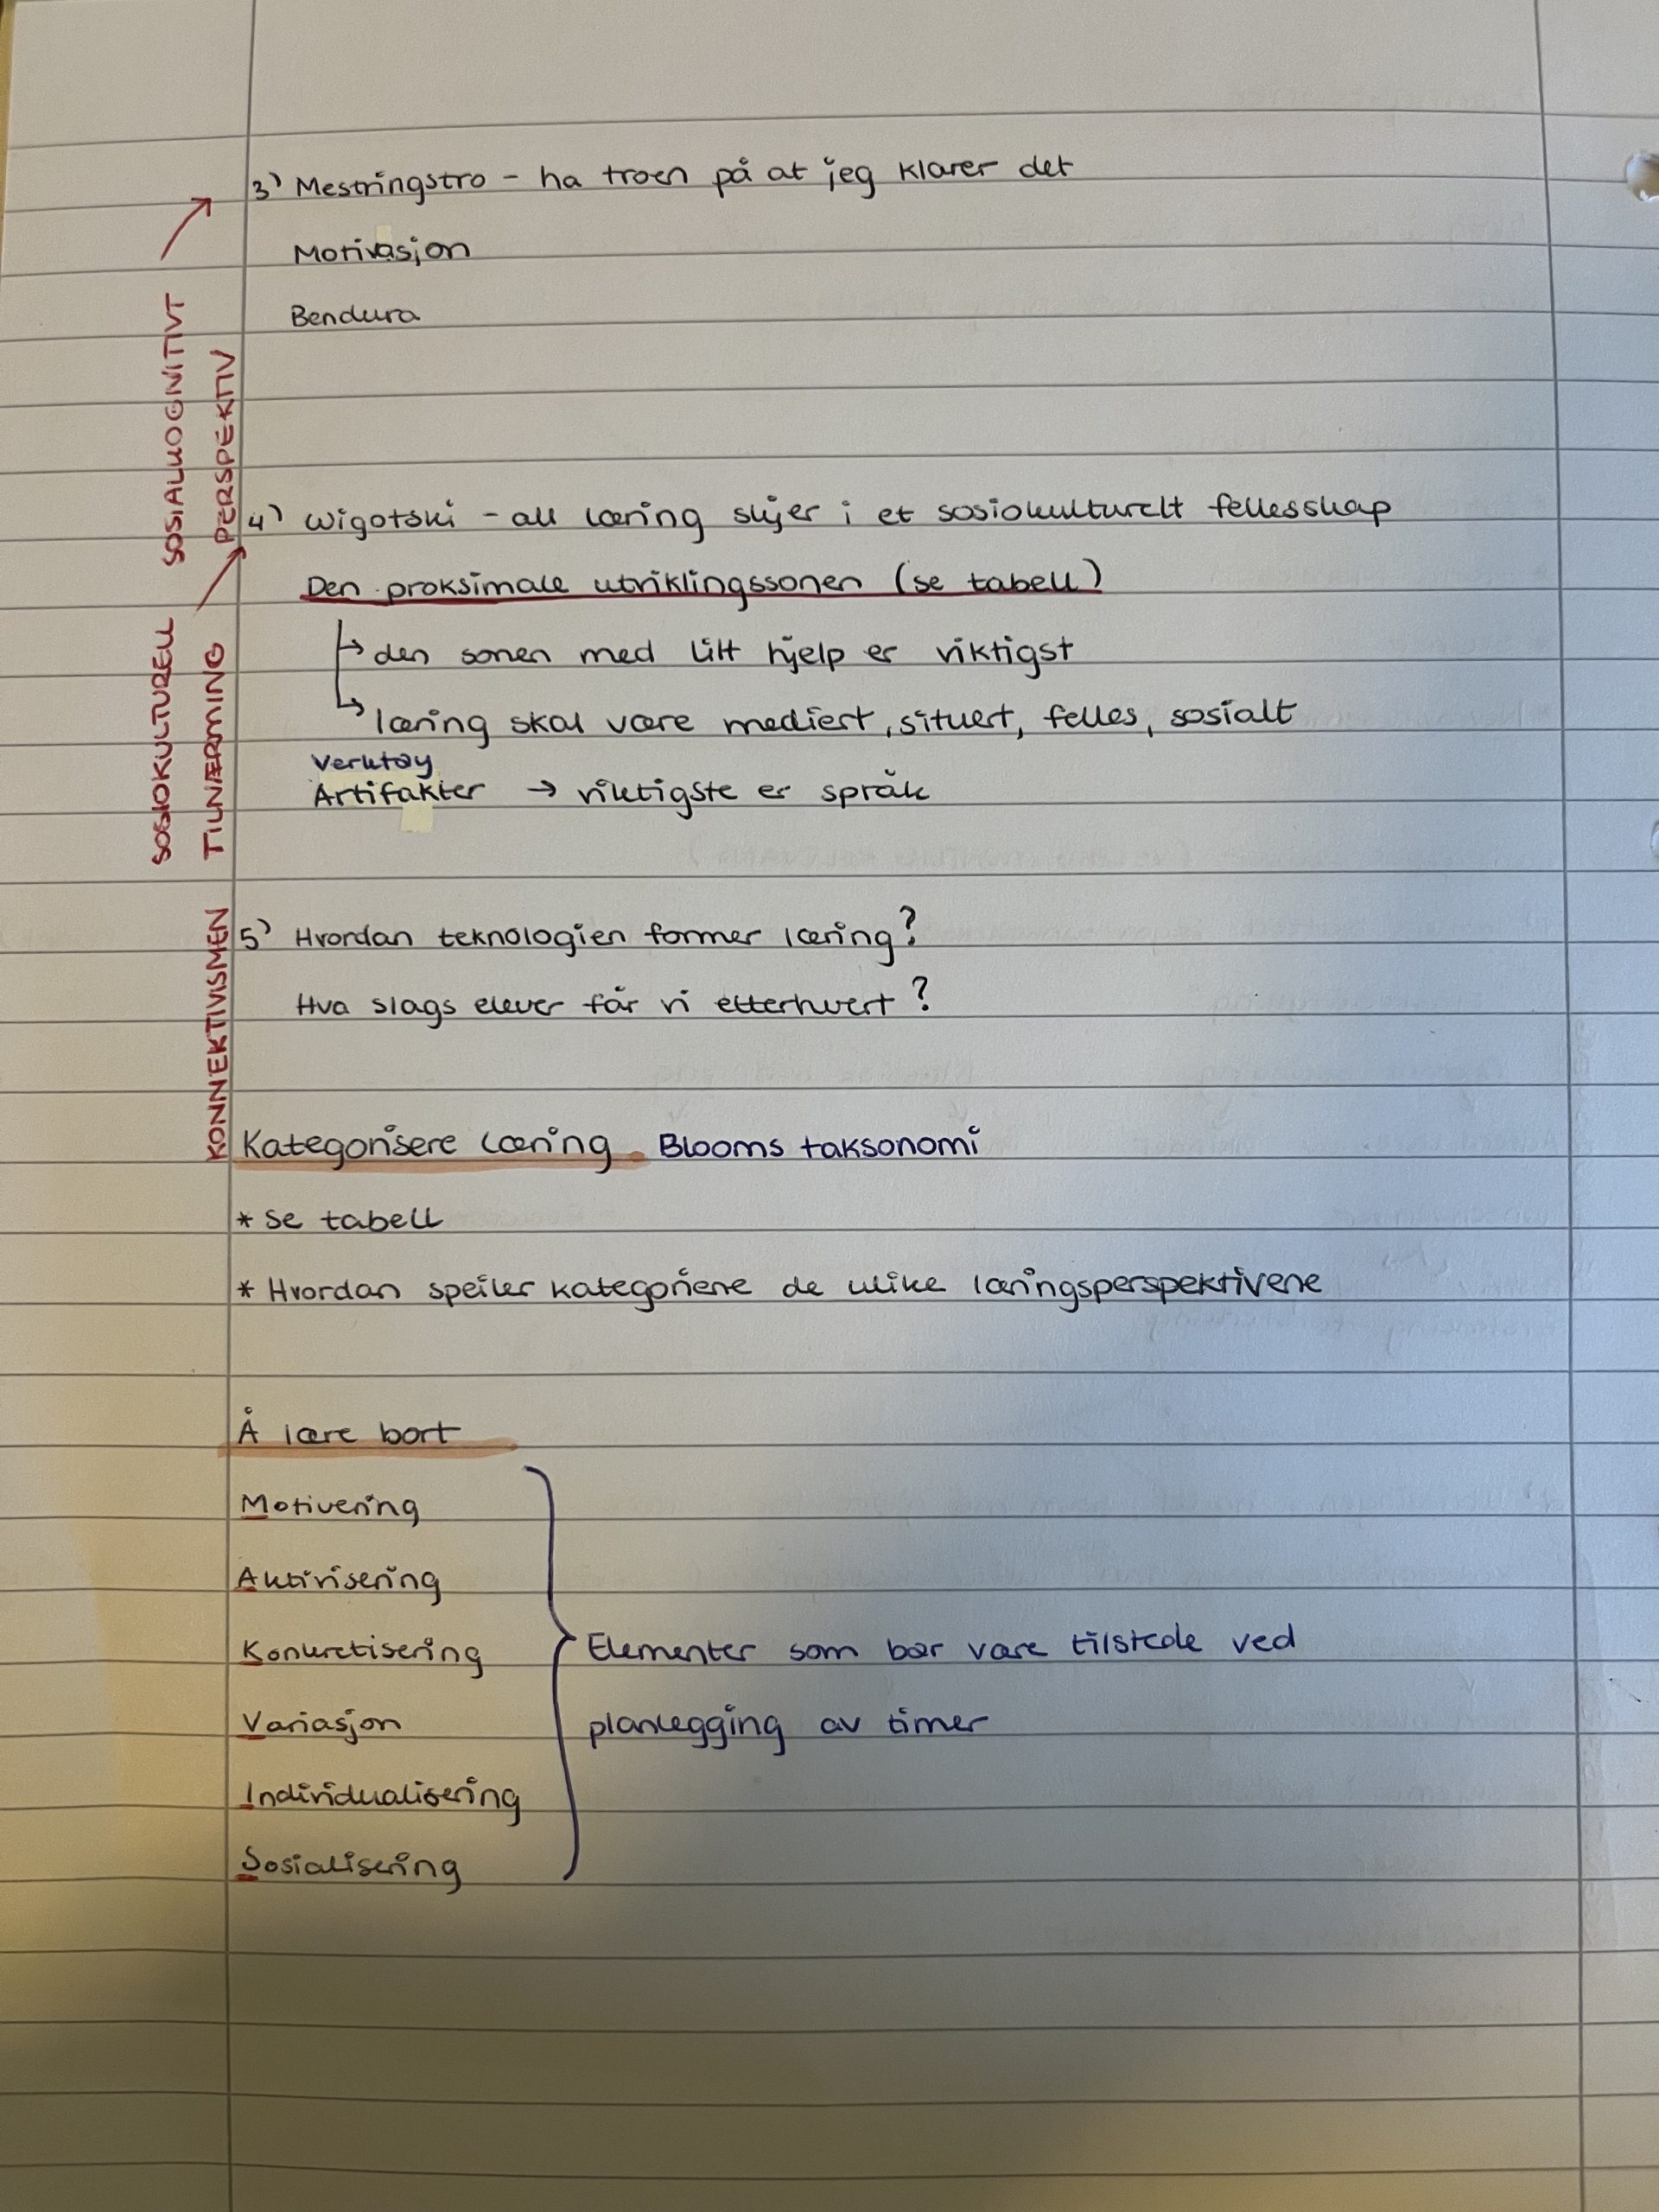 SOSIALKOGNITIVT
PERSPEKTIV
3) Mestringstro - ha troen på at jeg klarer det
Motivasjon
Bendura
SOSIOKULTURELL
TILNÆRMING
4) Wigotski - all læring skjer i et sosiokulturelt fellesskap
Den proksimale utviklingssonen (se tabell)
↳ den sonen med litt hjelp er viktigst
↳ læring skal være mediert, situert, felles, sosialt
Verktøy
Artifakter → viktigste er språk
KONNEKTIVISMEN
5) Hvordan teknologien former læring?
Hva slags elever får vi etterhvert?
Kategorisere læring - Blooms taksonomi
* Se tabell
* Hvordan speiler kategoriene de ulike læringsperspektivene
Å lære bort
Motivering
Aktivisering
Konkretisering
Variasjon
Individualisering
Sosialisering
Elementer som bør være tilstede ved
planlegging av timer